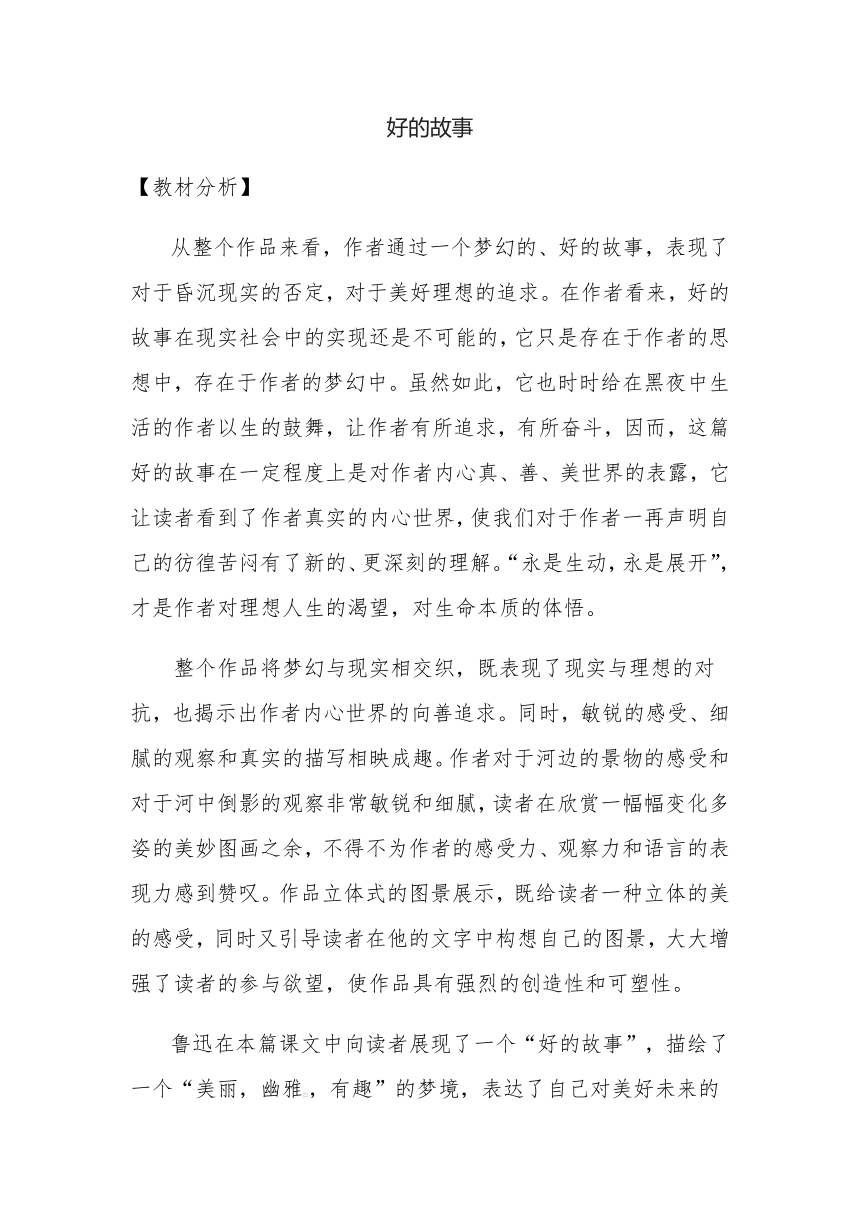 好的故事
【教材分析】
从整个作品来看，作者通过一个梦幻的、好的故事，表现了
对于昏沉现实的否定，对于美好理想的追求。在作者看来，好的
故事在现实社会中的实现还是不可能的，它只是存在于作者的思
想中，存在于作者的梦幻中。虽然如此，它也时时给在黑夜中生
活的作者以生的鼓舞，让作者有所追求，有所奋斗，因而，这篇
好的故事在一定程度上是对作者内心真、善、美世界的表露，它
让读者看到了作者真实的内心世界，使我们对于作者一再声明自
己的彷徨苦闷有了新的、更深刻的理解。“永是生动，永是展开”，
才是作者对理想人生的渴望，对生命本质的体悟。
整个作品将梦幻与现实相交织，既表现了现实与理想的对
抗，也揭示出作者内心世界的向善追求。同时，敏锐的感受、细
腻的观察和真实的描写相映成趣。作者对于河边的景物的感受和
对于河中倒影的观察非常敏锐和细腻，读者在欣赏一幅幅变化多
姿的美妙图画之余，不得不为作者的感受力、观察力和语言的表
现力感到赞叹。作品立体式的图景展示，既给读者一种立体的美
的感受，同时又引导读者在他的文字中构想自己的图景，大大增
强了读者的参与欲望，使作品具有强烈的创造性和可塑性。
鲁迅在本篇课文中向读者展现了一个“好的故事”，描绘了
一个“美丽，幽雅，有趣”的梦境，表达了自己对美好未来的